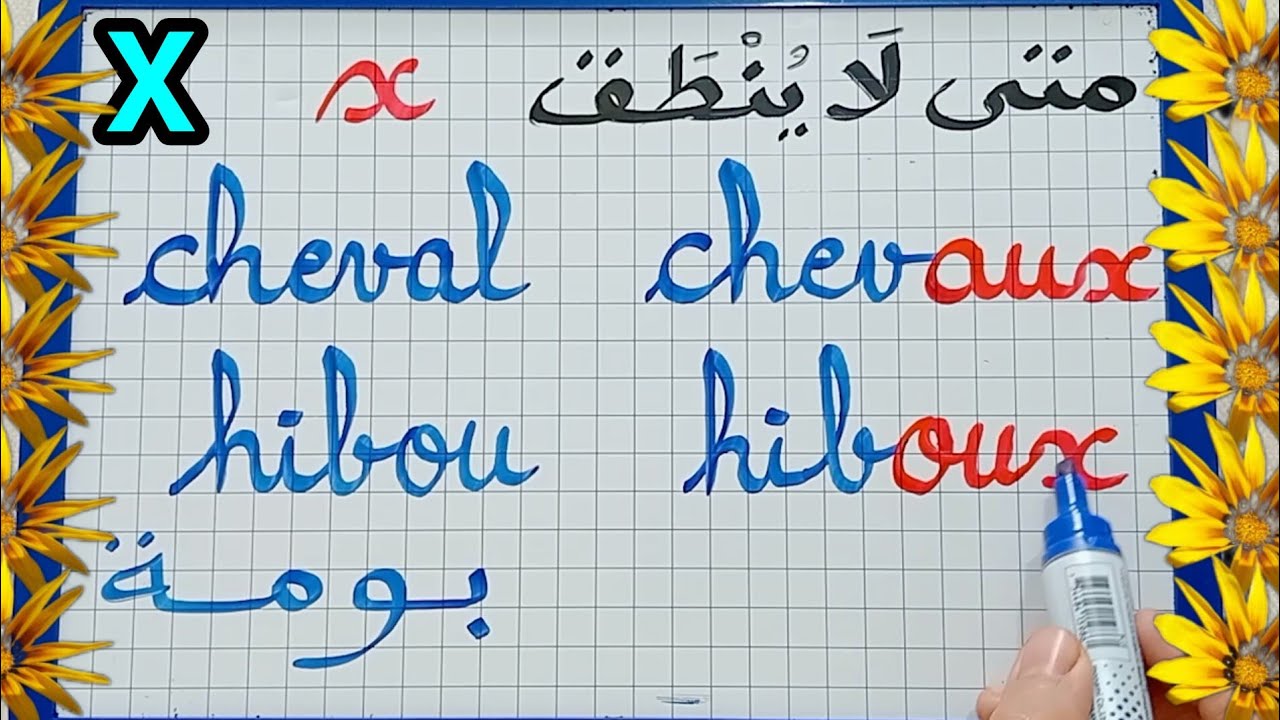 X
متى لَا يُنْطَق x
cheval chevaux
hibou hiboux
بومة